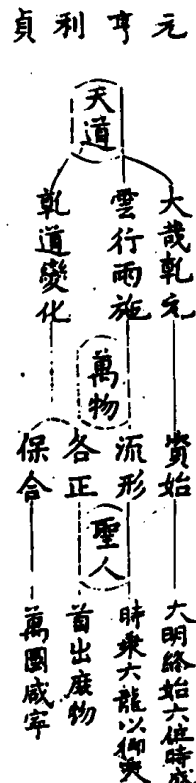 元亨利貞
天道
大哉乾元
雲行雨施
乾道變化
萬物
資始
流形
各正
保合
聖人
大明終始六位時成
時乘六龍以御天
首出庶物
萬國咸寧